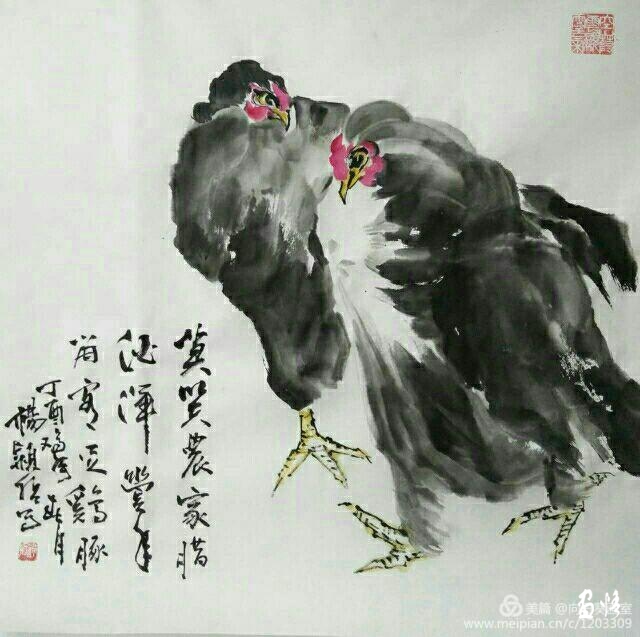 莫笑農家腊
酒渾豐年
留客足鷄豚
丁酉
楊穎
美篇 @向
www.meipian.cn/c/1203309